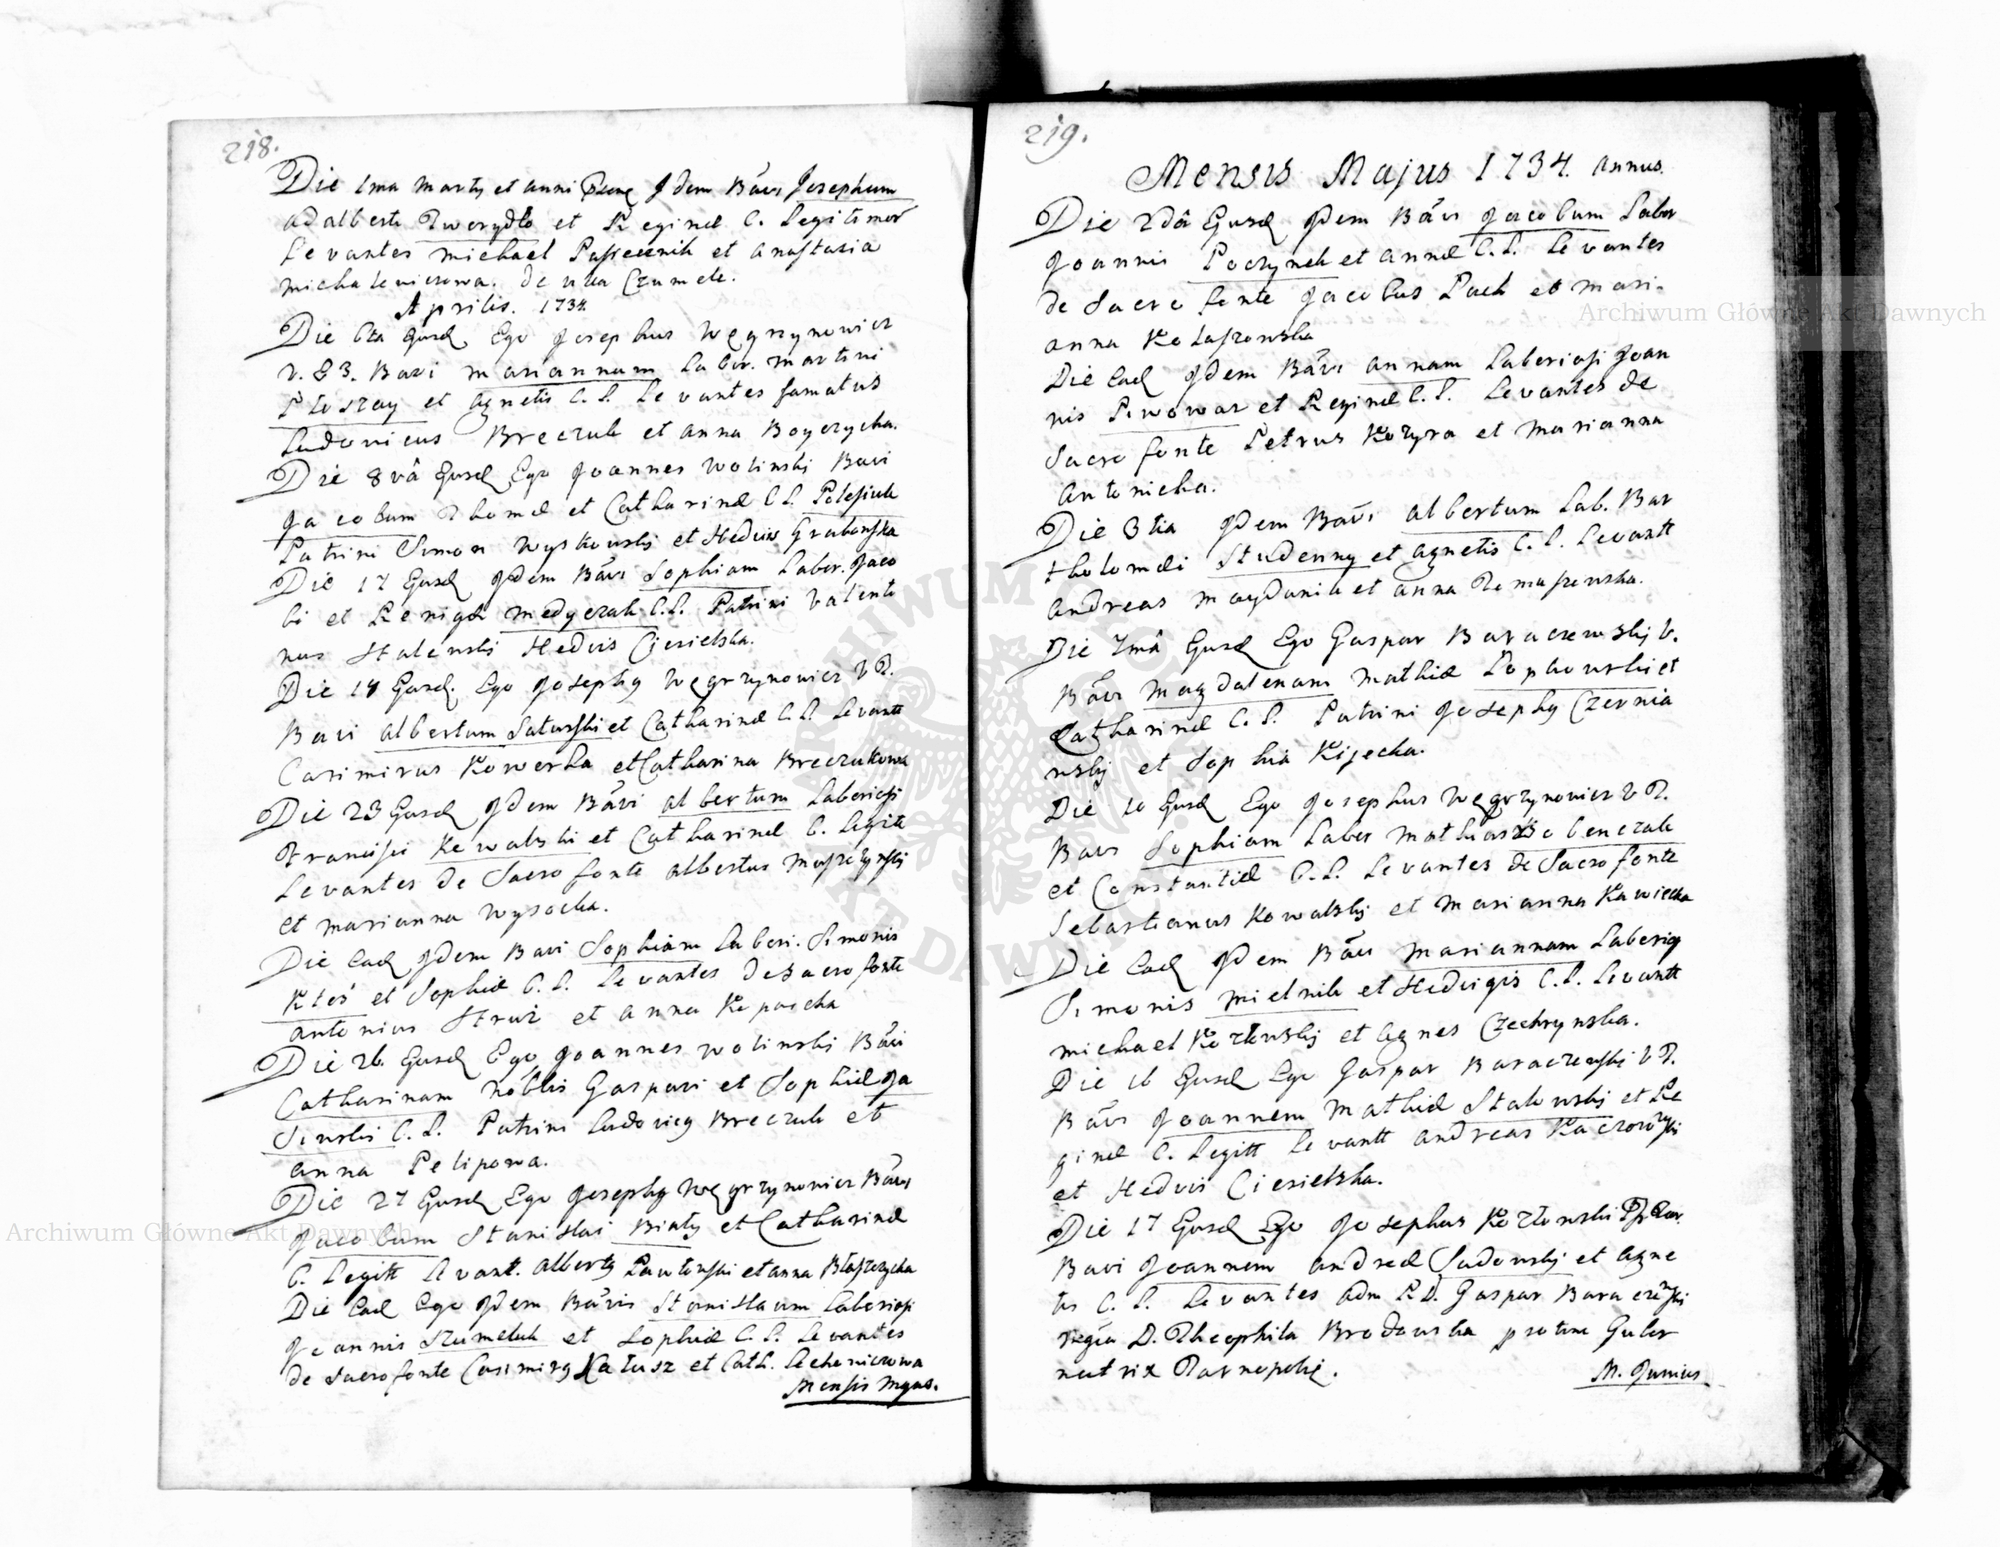 218.
Die 1ma Marty et anni Idem Bavi Josephum
Adalberti Tworydło et Reginæ C. Legitimor
Levantes Michael Passiecznik et Anastasia
Michalewiczowa. De Czumele.
Aprilis. 1734
Die 6ta Ejusd Ego Josephus Węgrzynowicz
Bavi Mariannam Labor. Martini
et Agnetis C. L. Levantes famatus
Ludovicus Breczuk et Anna Boyczycha.
Die 8vâ Ejusd Ego Joannes Wolinski Bavi
Jacobum Thomæ et Catharinæ C L. Polesiuk
Patrini Simon Wyskowskj et Hedvis Grabowska
Die 17 Ejusd Idem Bavi Sophiam Labor. Jaco
bi et Renigæ Medyczak C. L. Patrini Valenti
nus Stalenski Hedvis Ciesielska.
Die 18 Ejusd. Ego Josephg Węgrzynowicz V P.
Bavi Albertum Saturski et Catharinæ C. L. Levantt
Casimirus Kowerka et Catharina Breczukowa
Die 23 Ejusd Idem Bavi Albertum Laboriosi
Francisci Kowalski et Catharinæ C. Legitt
Levantes de Sacro fonte Albertus Maszczynskj
et Marianna Wysocka.
Die Ead Idem Bavi Sophiam Labori. Simonis
Kłoś et Sophiæ C. L. Levantes de Sacro fonte
Antonius Struź et Anna Koparcha
Die 26. Ejusd Ego Joannes Wolinski Bavi
Catharinam Nobilis Gaspari et Sophiæ Ja
sinski C. L. Patrini Ludovicg Breczuk et
Anna Pelipowa.
Die 27 Ejusd Ego Josephg Węgrzynowicz Bavi
Jacobum Stanislai Biały et Catharinæ
C. Legitt Levant. Albertg Pawłowski et Anna Błaszczycha
Die Ead Ego Idem Bavis Stanislaum Laboriosi
Joannis Szumeluk et Sophiæ C. L. Levantes
de Sacro fonte Casimirg Katusz et Cath. Lechowiczowa
Mensis Myus.
219.
Mensis Majus 1734. Annus.
Die 2dâ Ejusd Idem Bavi Jacobum Labor
Joannis Poczynek et Annæ C. L. Levantes
de Sacro fonte Jacobus Pack et Mari-
anna Kołaszowska
Die Ead Idem Bavi Annam Laboriosi Joan
nis Piwowar et Reginæ C. L. Levantes de
Sacro fonte Petrus Kozyra et Marianna
Antonicha.
Die 3tia Idem Bavi Albertum Lab. Bar
tholomæi Studenny et Agnetis C. L. Levantt
Andreas Maydanik et Anna Tomaszewska.
Die 7mâ Ejusd Ego Gaspar Baraczewskj V.
Bavi Magdalenam Mathiæ Łopkowski et
Catharinæ C. L. Patrini Josephg Czernia
wskj et Sophia Kijecka.
Die 10 Ejusd Ego Josephus Węgrzynowicz V P.
Bavi Sophiam Labor Mathias Bobenczak
et Constantiæ C. L. Levantes de Sacro fonte
Sebastianus Kowalskj et Marianna Kawiecka
Die Ead Idem Bavi Mariannam Laborig
Simonis Mielnik et Hedvigis C. L. Levantt
Michael Kozłowskj et Agnes Czechrynska.
Die 16 Ejusd Ego Gaspar Baraczewski V P.
Bavi Joannem Mathiæ Stalowskj et Re
ginæ C. Legitt Levantt Andreas Kaczorowski
et Hedvis Ciesielska.
Die 17 Ejusd Ego Josephus Kozłowski
Bavi Joannem Andreæ Sadowskj et Agne
tis C. L. Levantes Adm R. D. Gaspar Baraczewski
D. Theophila Brodowska protunc Guber
natrix Tarnopolig.
M. Junius